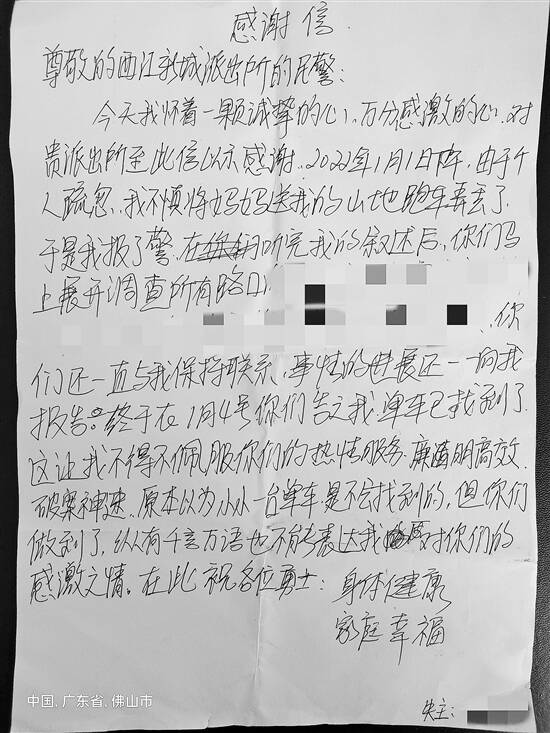 感谢信
尊敬的西江新城派出所的民警：
今天我怀着一颗诚挚的心、万分感激的心、对
贵派出所至此信以示感谢。2022年1月1日下午，由于个
人疏忽、我不慎将妈妈送我的山地跑车弄丢了。
于是我报了警。在听完我的叙述后，你们马
上展开调查所有路口
、你
们还一直与我保持联系、事情的进展还一向我
报告。终于在1月4号你们告之我，单车已找到了。
这让我不得不佩服你们的热情服务、廉洁明高效、
破案神速。原本以为小小一台单车是不会找到的，但你们
做到了，纵有千言万语也不能表达我对你们的
感激之情。在此祝各位勇士：身体健康
家庭幸福
失主：
中国、广东省、佛山市